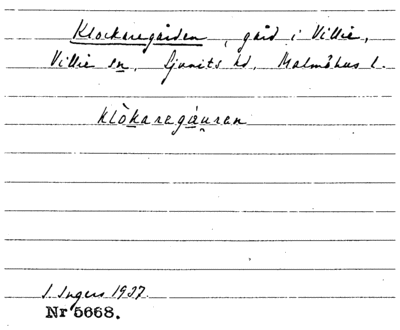 Klockaregården, gård i Villie,
Villie sn, Ljunits hd, Malmöhus l.
klòkaregáu̯ran
I. Ingers 1937.
Nr 5668.